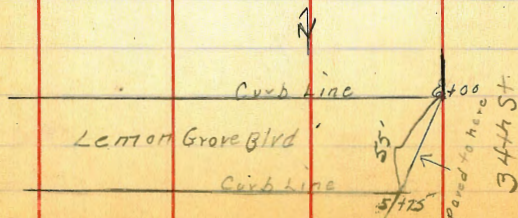 N
Curb Line
6+00
Lemon Grove Blvd
55'
Curb Line
5+75
Paved to here
34th St.